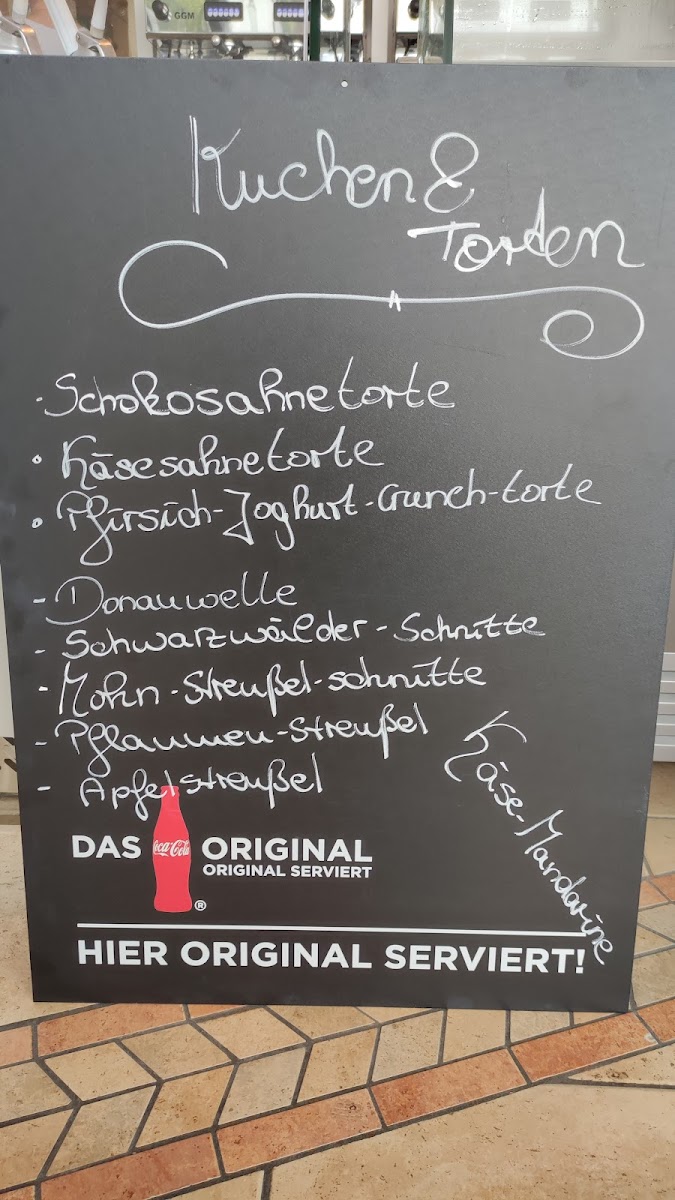 GGM
Kuchen &
Torten
· Schokosahnetorte
· Käsesahnetorte
· Pfirsich-Joghurt-Crunch-torte
- Donauwelle
- Schwarzwälder-Schnitte
- Mohn-Streußel-schnitte
- Pflaumen-Streußel
- Apfelstreußel
Käse-Mandarine
DAS Coca-Cola ORIGINAL
ORIGINAL SERVIERT
®
HIER ORIGINAL SERVIERT!